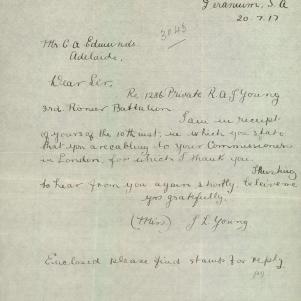 Geranium, S.A
20.7.17
3043
Mr C A Edmunds.
Adelaide.
Dear Sir,
Re 1286 Private R.A.J Young
3rd Pioneer Battalion
I am in receipt
of yours of the 10th inst, in which you state
that you are cabling to your Commissioners
in London, for which I thank you.
Thanking
to hear from you again shortly, believe me
yrs gratefully.
(Miss) J L Young
Enclosed please find stamps for reply